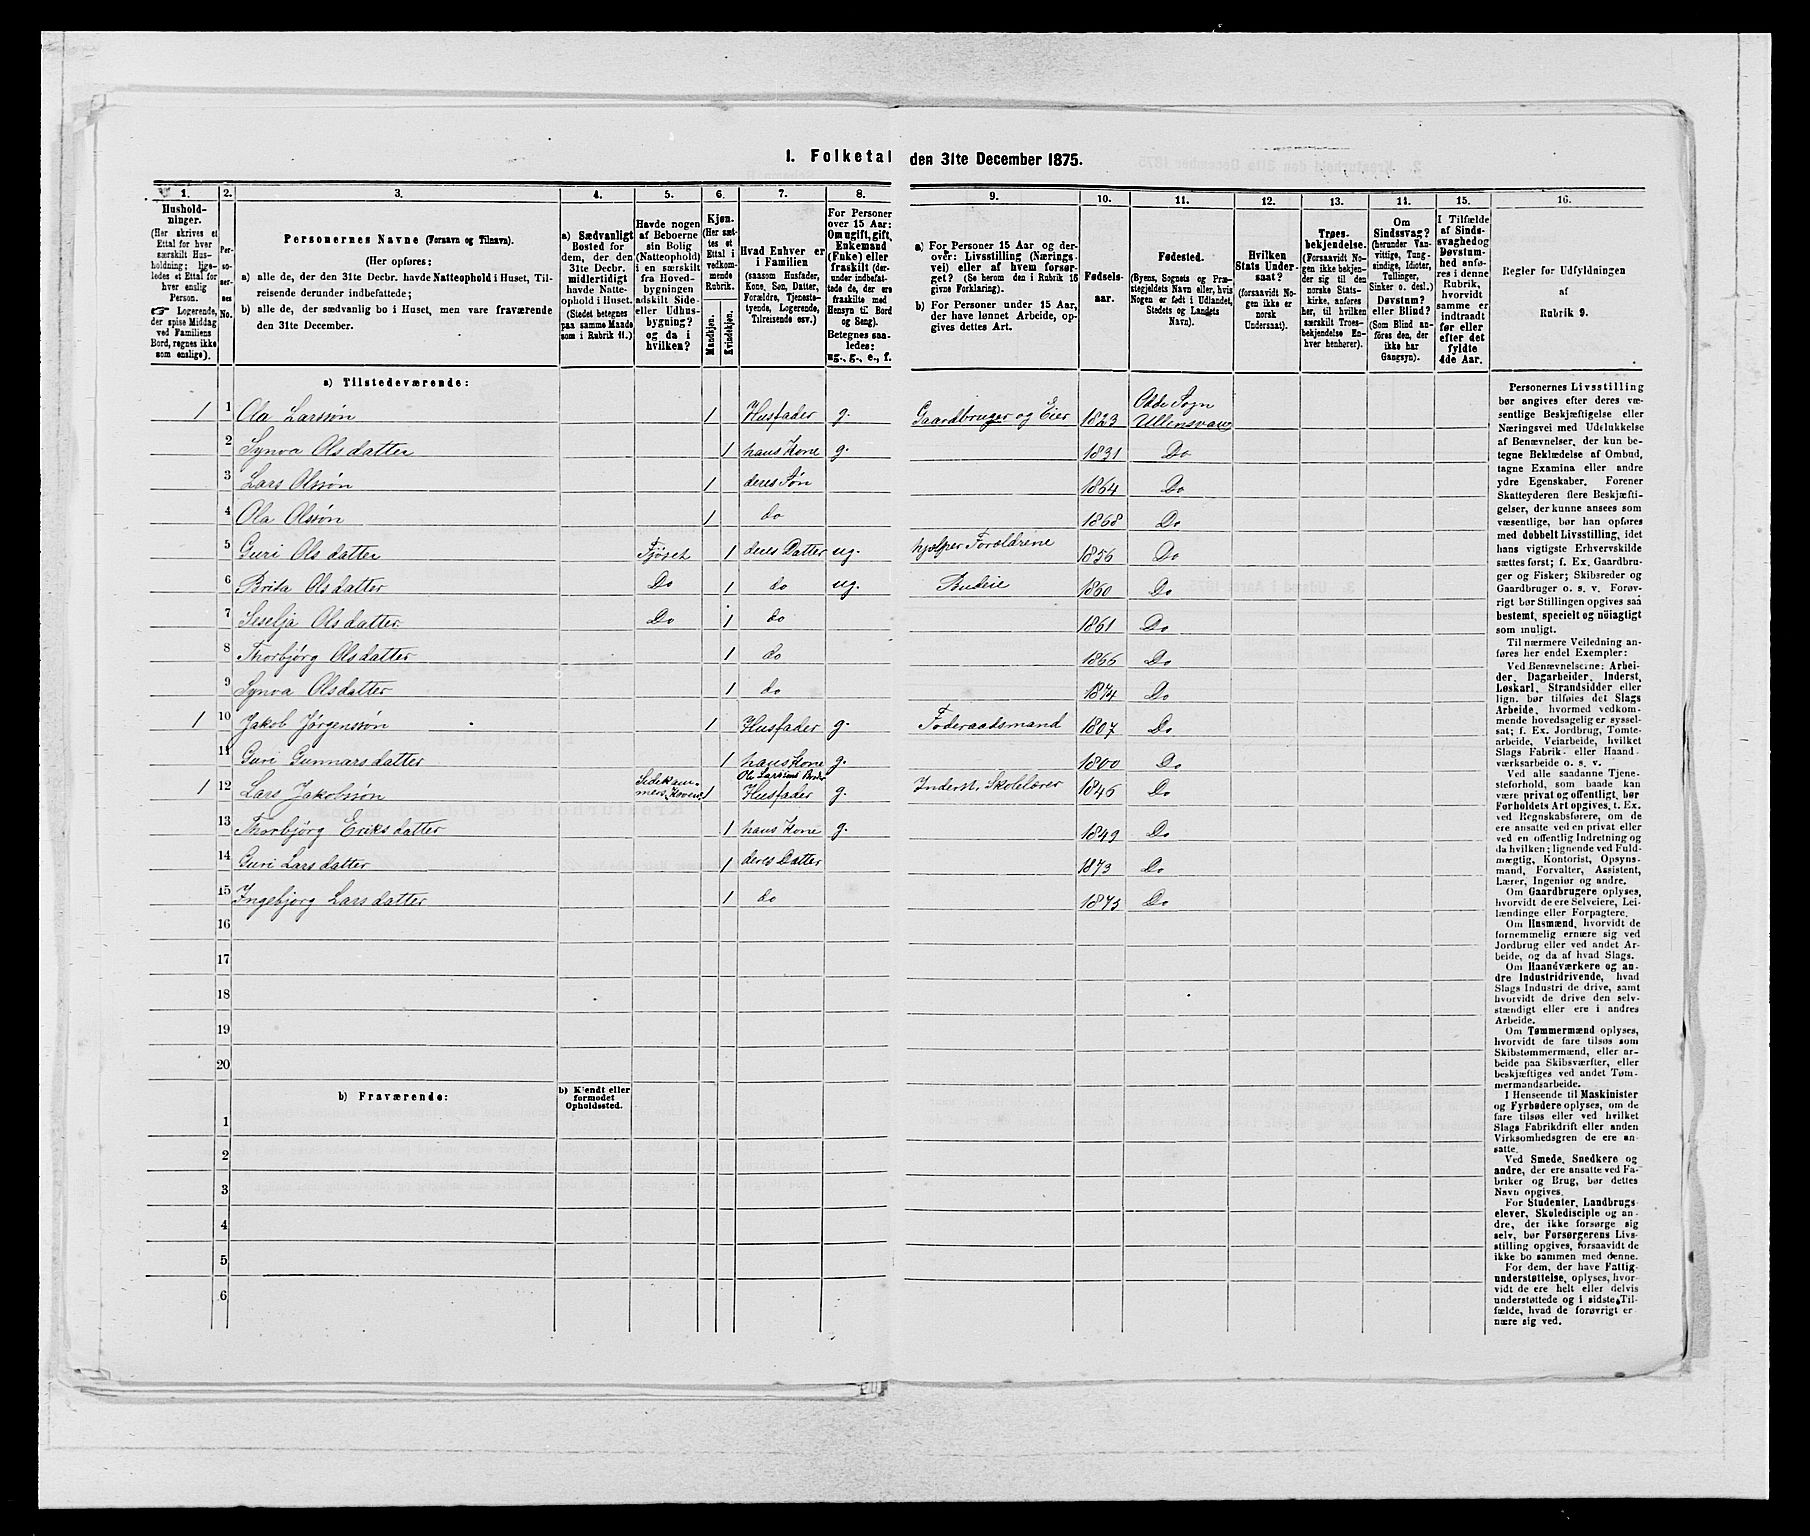 I. Folketal den 31te December 1875.
1.
Hushold-
ninger.
(Her skrives et
Ettal for hver
særskilt Hus-
holdning; lige-
ledes et Ettal for
hver enslig
Person.
☞ Logerende,
der spise Middag
ved Familiens
Bord, regnes ikke
som enslige).
2.
Per-
so-
ner-
nes
No.
3.
Personernes Navne (Fornavn og Tilnavn).
(Her opføres:
a) alle de, der den 31te Decbr. havde Natteophold i Huset, Til-
reisende derunder indbefattede;
b) alle de, der sædvanlig bo i Huset, men vare fraværende
den 31te December.
4.
a) Sædvanligt
Bosted for
dem, der den
31te Decbr.
midlertidigt
havde Natte-
ophold i Huset.
(Stedet betegnes
paa samme Maade
som i Rubrik 11.)
5.
Havde nogen
af Beboerne
sin Bolig
(Natteophold)
i en særskilt
fra Hoved-
bygningen
adskilt Side-
eller Udhus-
bygning?
og da i
hvilken?
6.
Kjøn.
(Her sæt-
tes et
Ettal i
vedkom-
mende
Rubrik.
Mandkjøn.
Kvindekjøn.
7.
Hvad Enhver er
i Familien
(saasom Husfader,
Kone, Søn, Datter,
Forældre, Tjeneste-
tyende, Logerende,
Tilreisende osv.)
8.
For Personer
over 15 Aar:
Om ugift, gift,
Enkemand
(Enke) eller
fraskilt (der-
under indbefat-
tede de, der ere
fraskilte med
Hensyn til Bord
og Seng).
Betegnes saa-
ledes:
ug., g., e., f.
9.
a) For Personer 15 Aar og der-
over: Livsstilling (Nærings-
vei) eller af hvem forsør-
get? (Se herom den i Rubrik 16
givne Forklaring).
b) For Personer under 15 Aar,
der have lønnet Arbeide, op-
gives dettes Art.
10.
Fødsels-
aar.
11.
Fødested.
(Byens, Sognets og Præ-
stegjeldets Navn eller, hvis
Nogen er født i Udlandet,
Stedets og Landets
Navn).
12.
Hvilken
Stats Under-
saat?
(forsaavidt No-
gen ikke er
norsk
Undersaat).
13.
Troes-
bekjendelse.
(Forsaavidt No-
gen ikke bekjen-
der sig til den
norske Stats-
kirke, anføres
her, til hvilken
særskilt Troes-
bekjendelse En-
hver henhører).
14.
Om
Sindssvag?
(herunder Van-
vittige, Tung-
sindige, Idioter,
Tullinger,
Sinker o. desl.)
Døvstum?
eller Blind?
(Som Blind an-
føres den, der
ikke har
Gangsyn).
15.
I Tilfælde
af Sinds-
svaghed og
Døvstum-
hed anfø-
res i denne
Rubrik,
hvorvidt
samme er
indtraadt
før eller
efter det
fyldte
4de Aar.
16.
Regler for Udfyldningen
af
Rubrik 9.
a) Tilstedeværende:
1 1 Ola Larssøn 1 Husfader g. Gaardbruger og Eier 1823 Odde Sogn Ullensvang
2 Synva Olsdatter 1 hans Kone g. 1831 Do
3 Lars Olssøn 1 deres Søn 1864 Do
4 Ola Olssøn 1 do 1868 Do
5 Guri Olsdatter Fjøset 1 deres Datter ug. hjælper Forældrene 1856 Do
6 Brita Olsdatter Do 1 do ug. Budeie 1860 Do
7 Seselja Olsdatter Do 1 do 1861 Do
8 Thorbjörg Olsdatter 1 do 1866 Do
9 Synva Olsdatter 1 do 1874 Do
1 10 Jakob Jörgenssön 1 Husfader g. Foderaadsmand 1807 Do
11 Guri Gunnarsdatter 1 hans Kone g. 1800 Do
1 12 Lars Jakobssøn Sidekam- 1 Husfader g. Inderst, Skolelærer 1846 Do
13 Thorbjörg Eriksdatter 1 hans Kone g. 1849 Do
14 Guri Larsdatter 1 deres Datter 1873 Do
15 Ingebjørg Larsdatter 1 do 1875 Do
16
17
18
19
20
b) Fraværende:
b) Kjendt eller
formodet
Opholdssted.
1
2
3
4
5
6
Personernes Livsstilling
bør angives efter deres væ-
sentlige Beskjæftigelse eller
Næringsvei med Udelukkelse
af Benævnelser, der kun be-
tegne Beklædelse af Ombud,
tagne Examina eller andre
ydre Egenskaber. Forener
Skatteyderen flere Beskjæfti-
gelser, der kunne ansees som
væsentlige, bør han opføres
med dobbelt Livsstilling, idet
hans vigtigste Erhvervskilde
sættes først; f. Ex. Gaardbru-
ger og Fisker; Skibsreder og
Gaardbruger o. s. v. Forøv-
rigt bør Stillingen opgives saa
bestemt, specielt og nöiagtigt
som muligt.
Til nærmere Veiledning an-
føres her endel Exempler:
Ved Benævnelserne: Arbei-
der, Dagarbeider, Inderst,
Løskarl, Strandsidder eller
lign. bør tilføies det Slags
Arbeide, hvormed vedkom-
mende hovedsagelig er syssel-
sat; f. Ex. Jordbrug, Tomte-
arbeide, Veiarbeide, hvilket
Slags Fabrik- eller Haand-
værksarbeide o. s. v.
Ved alle saadanne Tjene-
steforhold, som baade kan
være privat og offentligt, bør
Forholdets Art opgives, t. Ex.
ved Regnskabsførere, om de
ere ansatte ved en privat eller
ved en offentlig Indretning og
da hvilken; lignende ved Fuld-
mægtig, Kontorist, Opsyns-
mand, Forvalter, Assistent,
Lærer, Ingeniør og andre.
Om Gaardbrugere oplyses,
hvorvidt de ere Selveiere, Lei-
lændinge eller Forpagtere.
Om Husmænd, hvorvidt de
fornemmelig ernære sig ved
Jordbrug eller ved andet Ar-
beide, og da af hvad Slags.
Om Haandværkere og an-
dre Industridrivende, hvad
Slags Industri de drive, samt
hvorvidt de drive den selv-
stændigt eller ere i andres
Arbeide.
Om Tømmermænd oplyses,
hvorvidt de fare tilsøs som
Skibstømmermænd, eller ar-
beide paa Skibsværfter, eller
beskjæftiges ved andet Tøm-
mermandsarbeide.
I Henseende til Maskinister
og Fyrbødere oplyses, om de
fare tilsøs eller ved hvilket
Slags Fabrikdrift eller anden
Virksomhedsgren de ere an-
satte.
Ved Smede, Snedkere og
andre, der ere ansatte ved Fa-
briker og Brug, bør dettes
Navn opgives.
For Studenter, Landbrugs-
elever, Skoledisciple og an-
dre, der ikke forsørge sig
selv, bør Forsørgerens Livs-
stilling opgives, forsaavidt de
ikke bo sammen med denne.
For dem, der have Fattig-
understøttelse, oplyses, hvor-
vidt de ere helt eller delvis
understøttede og i sidste Til-
fælde, hvad de forøvrigt er-
nære sig ved.